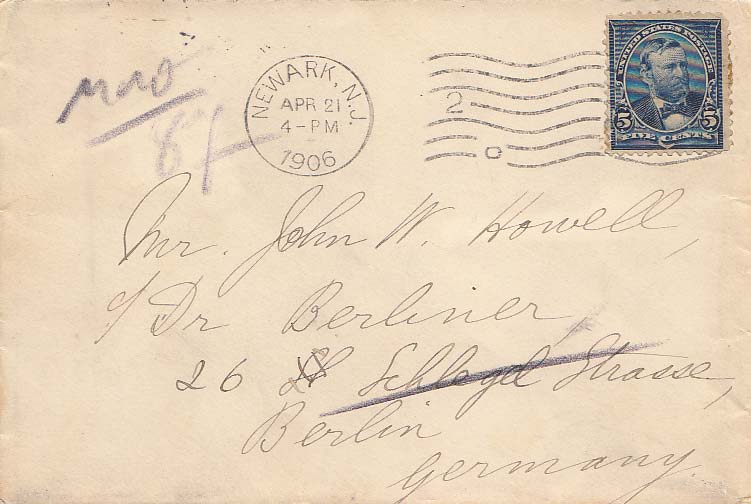 UNITED STATES POSTAGE
5 5
FIVE CENTS
NEWARK, N.J.
APR 21
4-PM
1906
2
0
Mr. John W. Howell,
c/ Dr Berliner,
26 Schlegel Strasse,
Berlin
Germany.